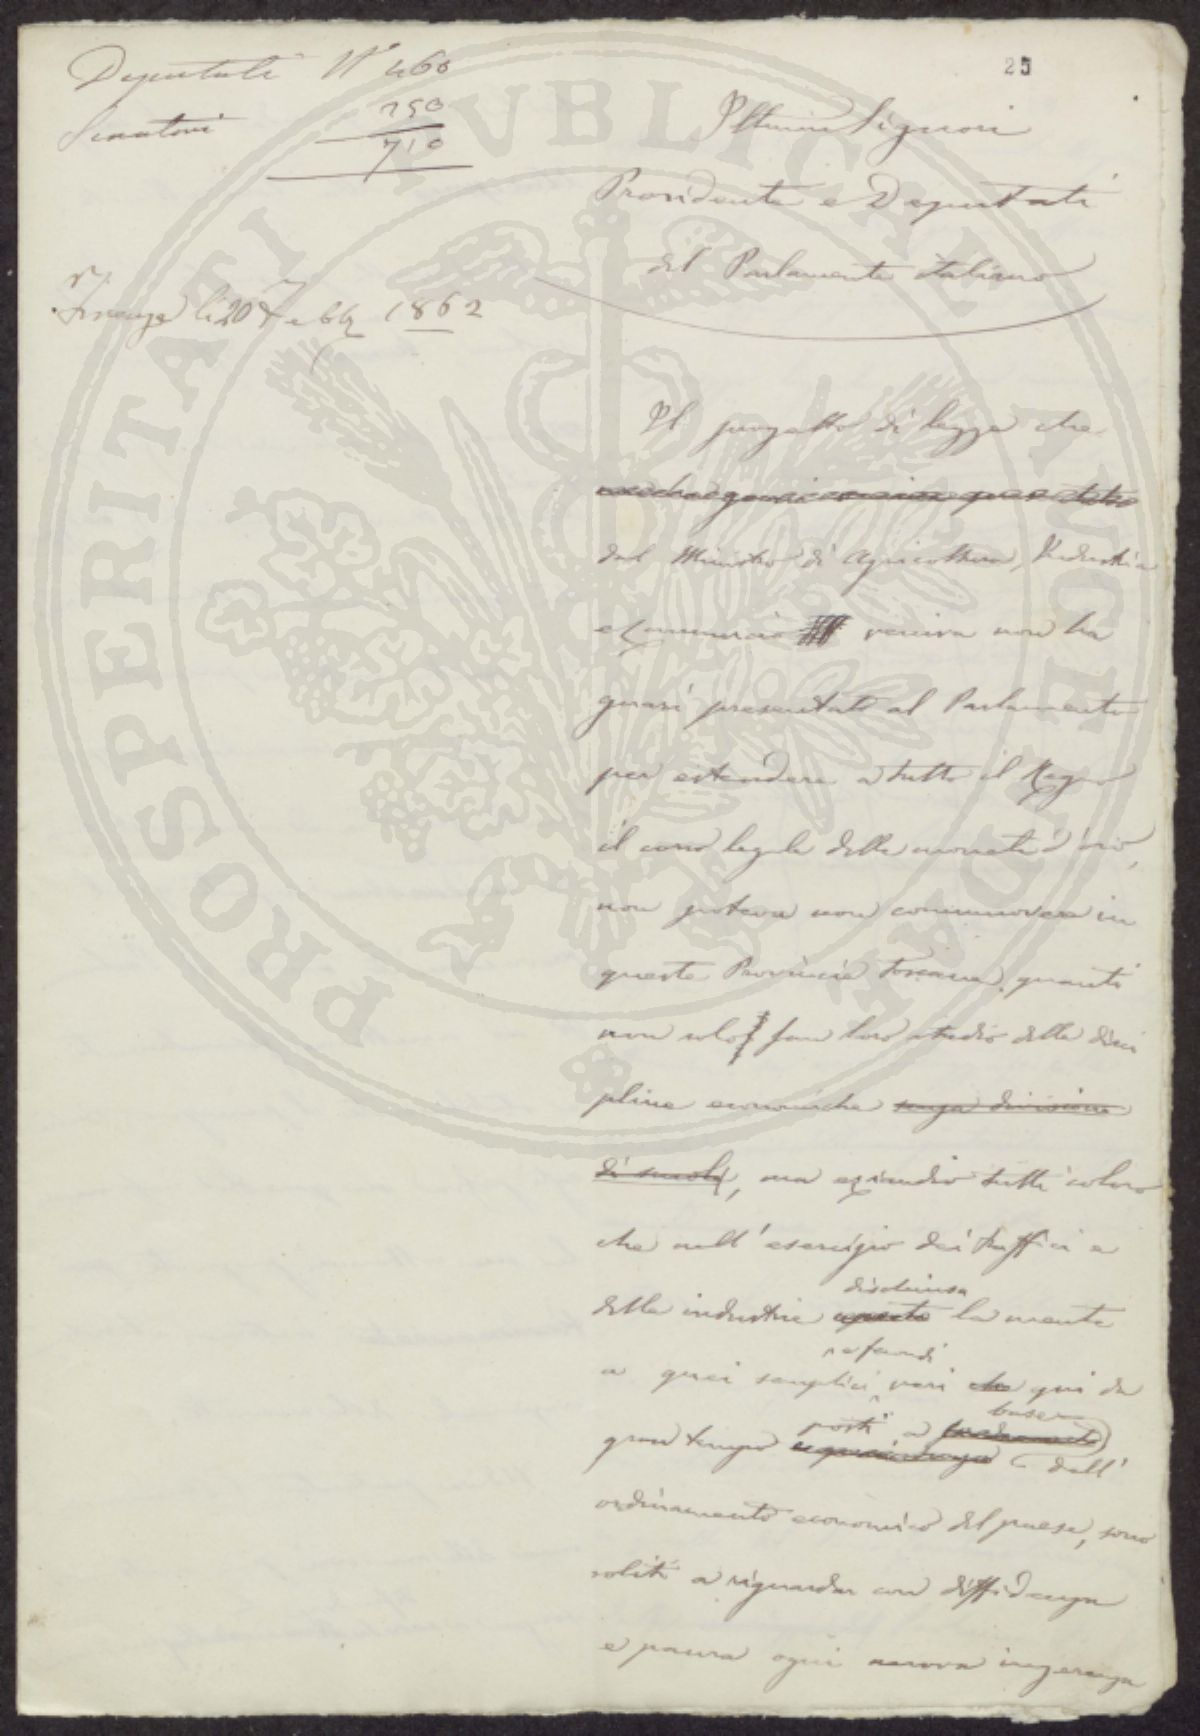 Deputati N° 460
Senatori 250
710
25
Ill.mi Signori
Presidente e Deputati
del Parlamento italiano
Firenze li 20 Febb. 1862
Il progetto di legge che
dal Ministro di Agricoltura, Industria
e Commercio veniva non ha
guari presentato al Parlamento
per estendere a tutto il Regno
il corso legale della moneta d'oro,
non poteva non commuovere in
queste Provincie toscane, quanti
non solo fan loro studio delle disci
pline economiche senza divisione
di scuola, ma eziandio tutti coloro
che nell'esercizio dei traffici e
dischiusa
delle industrie aperta la mente
a quei semplici veri che qui da
posti a base
gran tempo dell'
ordinamento economico del paese, sono
soliti a riguardar con diffidenza
e paura ogni nuova ingerenza
PROSPERITATI PVBLICAE AVGENDAE